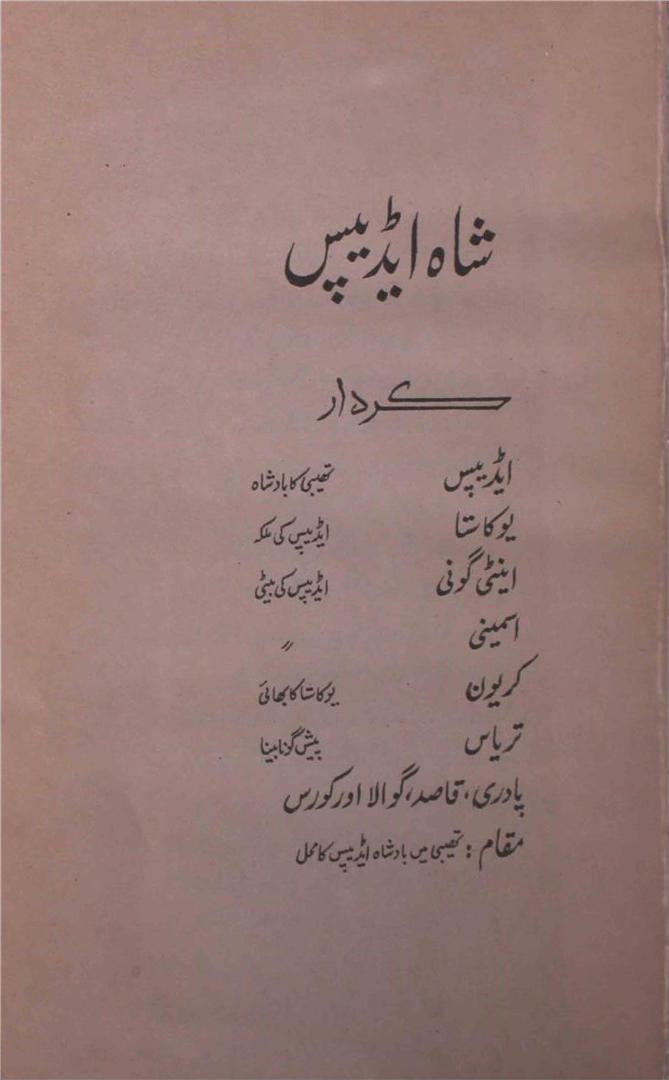 شاہ ایڈیپس
کردار
ایڈیپس تھیبی کا بادشاہ
یوکاستا ایڈیپس کی ملکہ
اینٹی گونی ایڈیپس کی بیٹی
اسمینی 〃
کریون یوکاستا کا بھائی
تریاس پیش گو نابینا
پادری، قاصد، گوالا اور کورس
مقام : تھیبی میں بادشاہ ایڈیپس کا محل